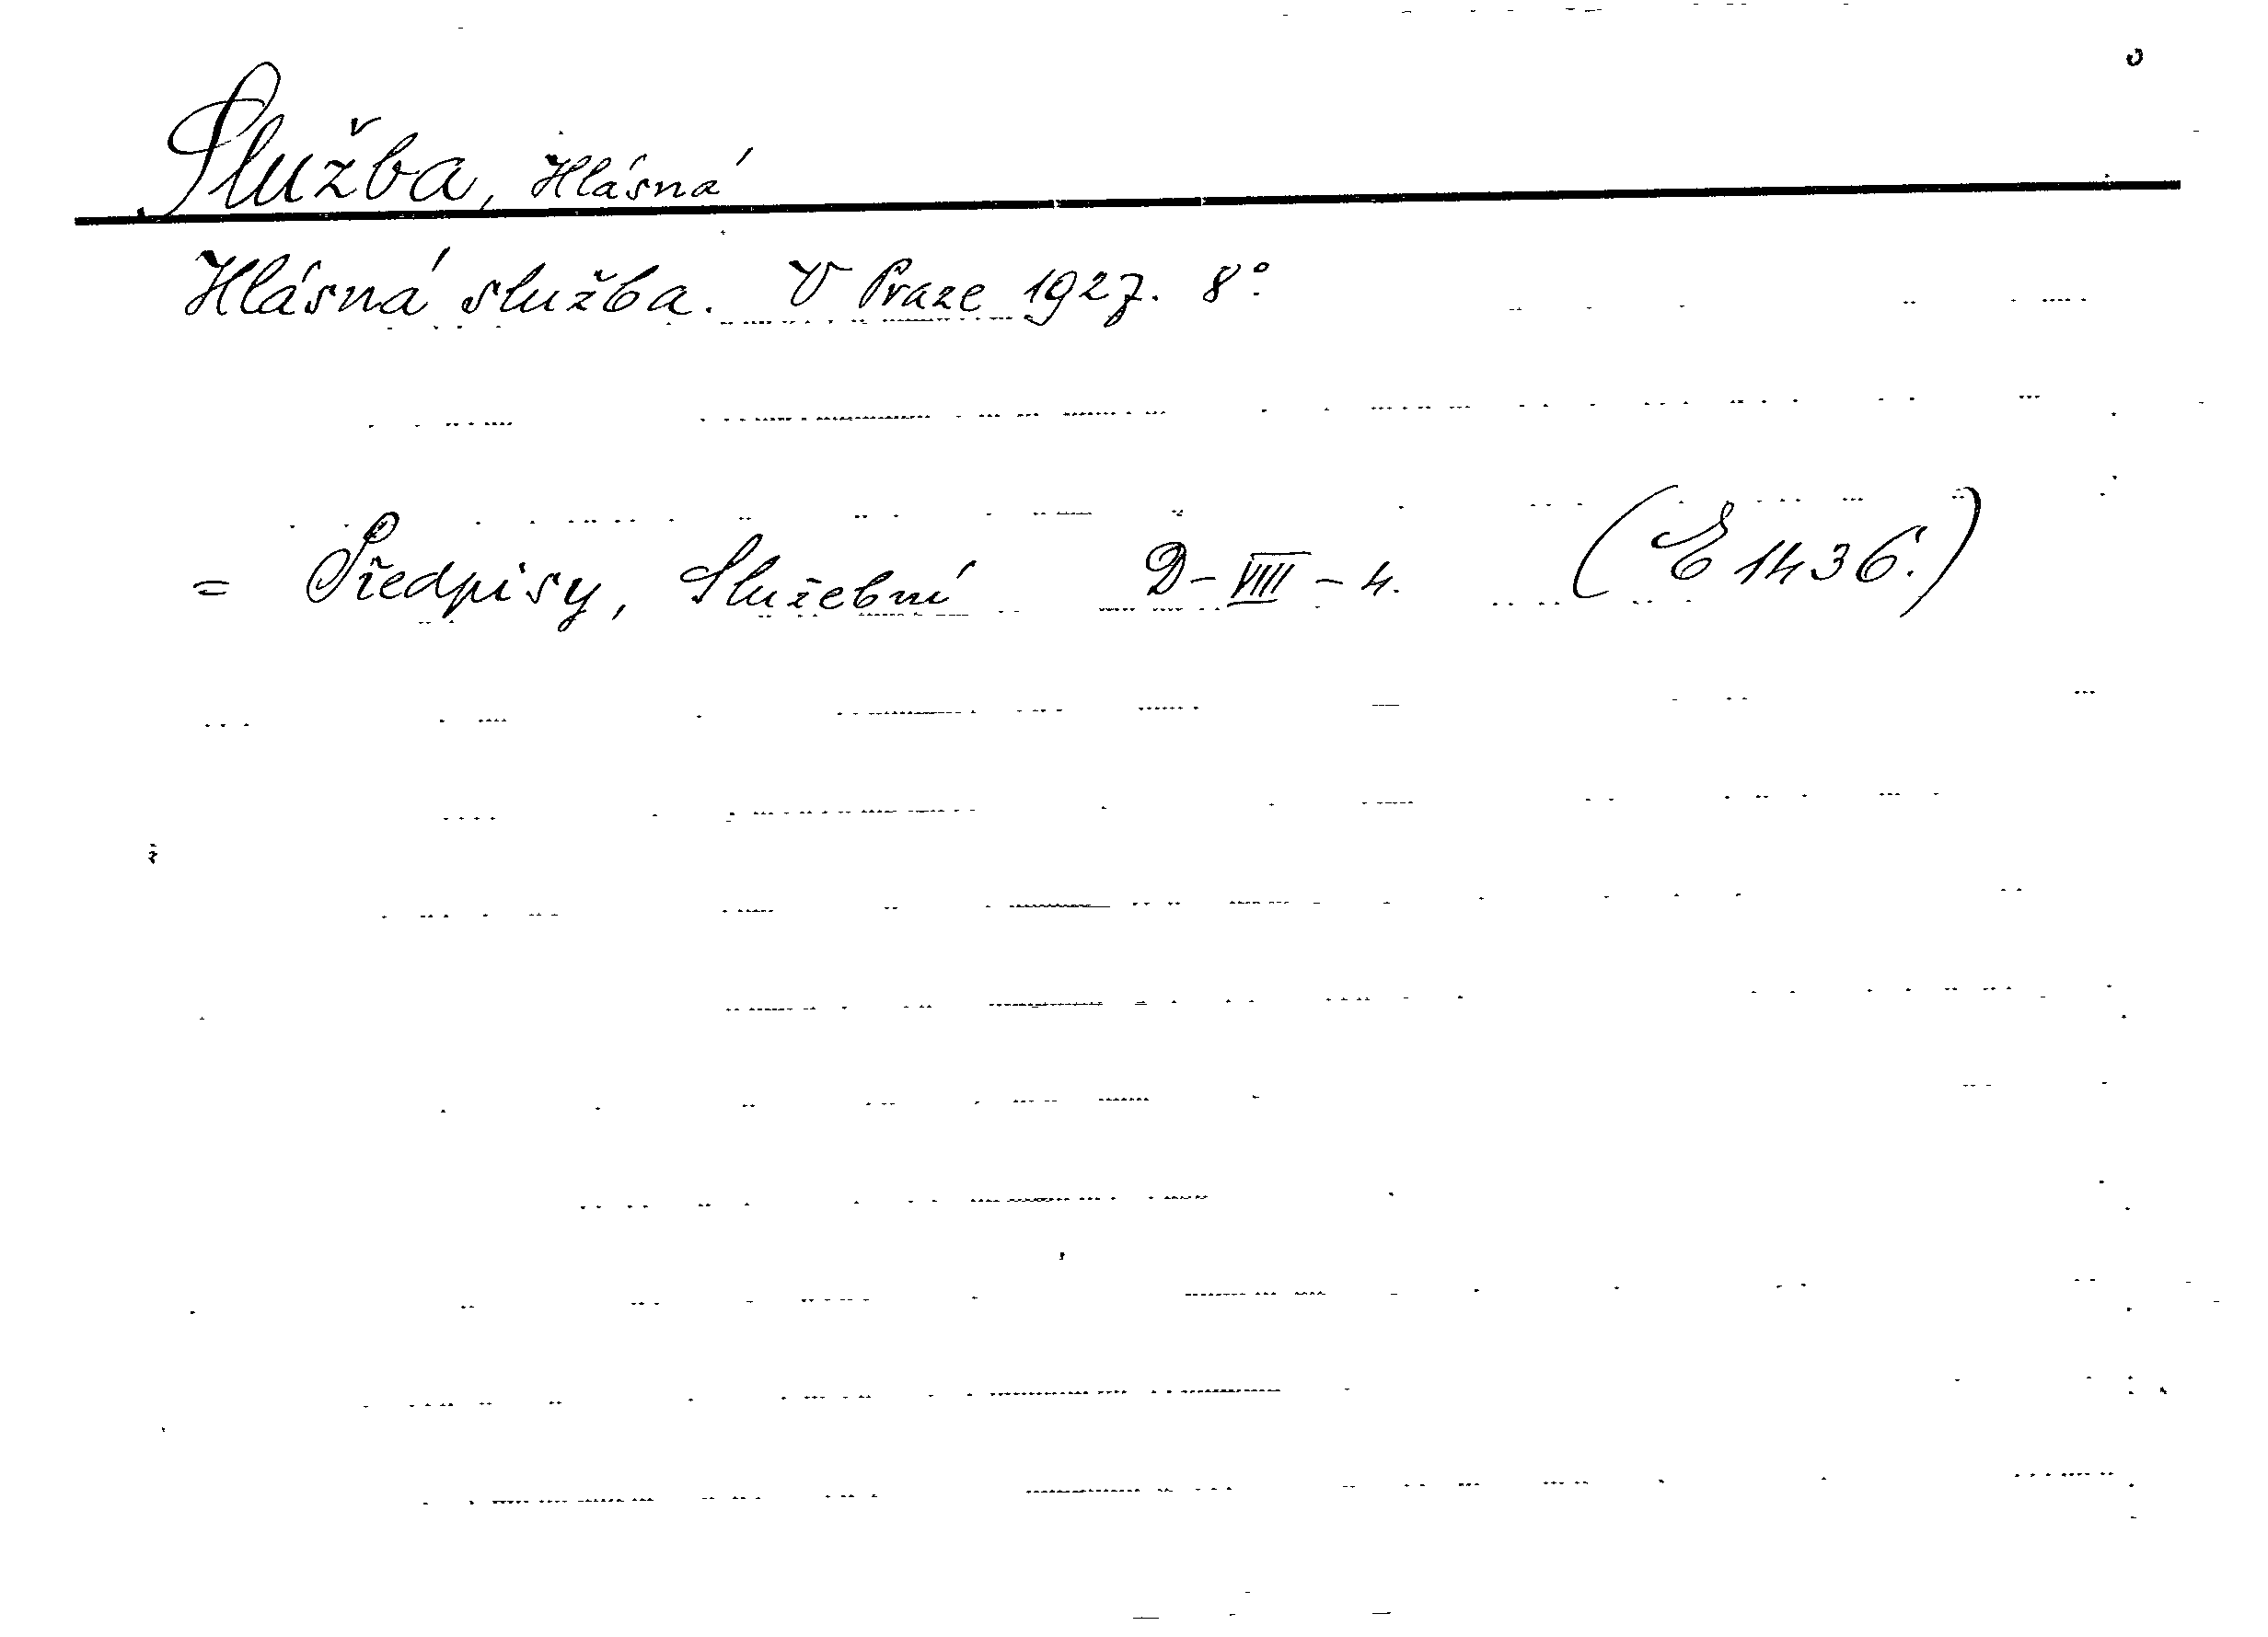 Služba, Hlásná
Hlásná služba. V Praze 1927. 8°.
= Předpisy, Služební D-VIII-4. (E 1436.)